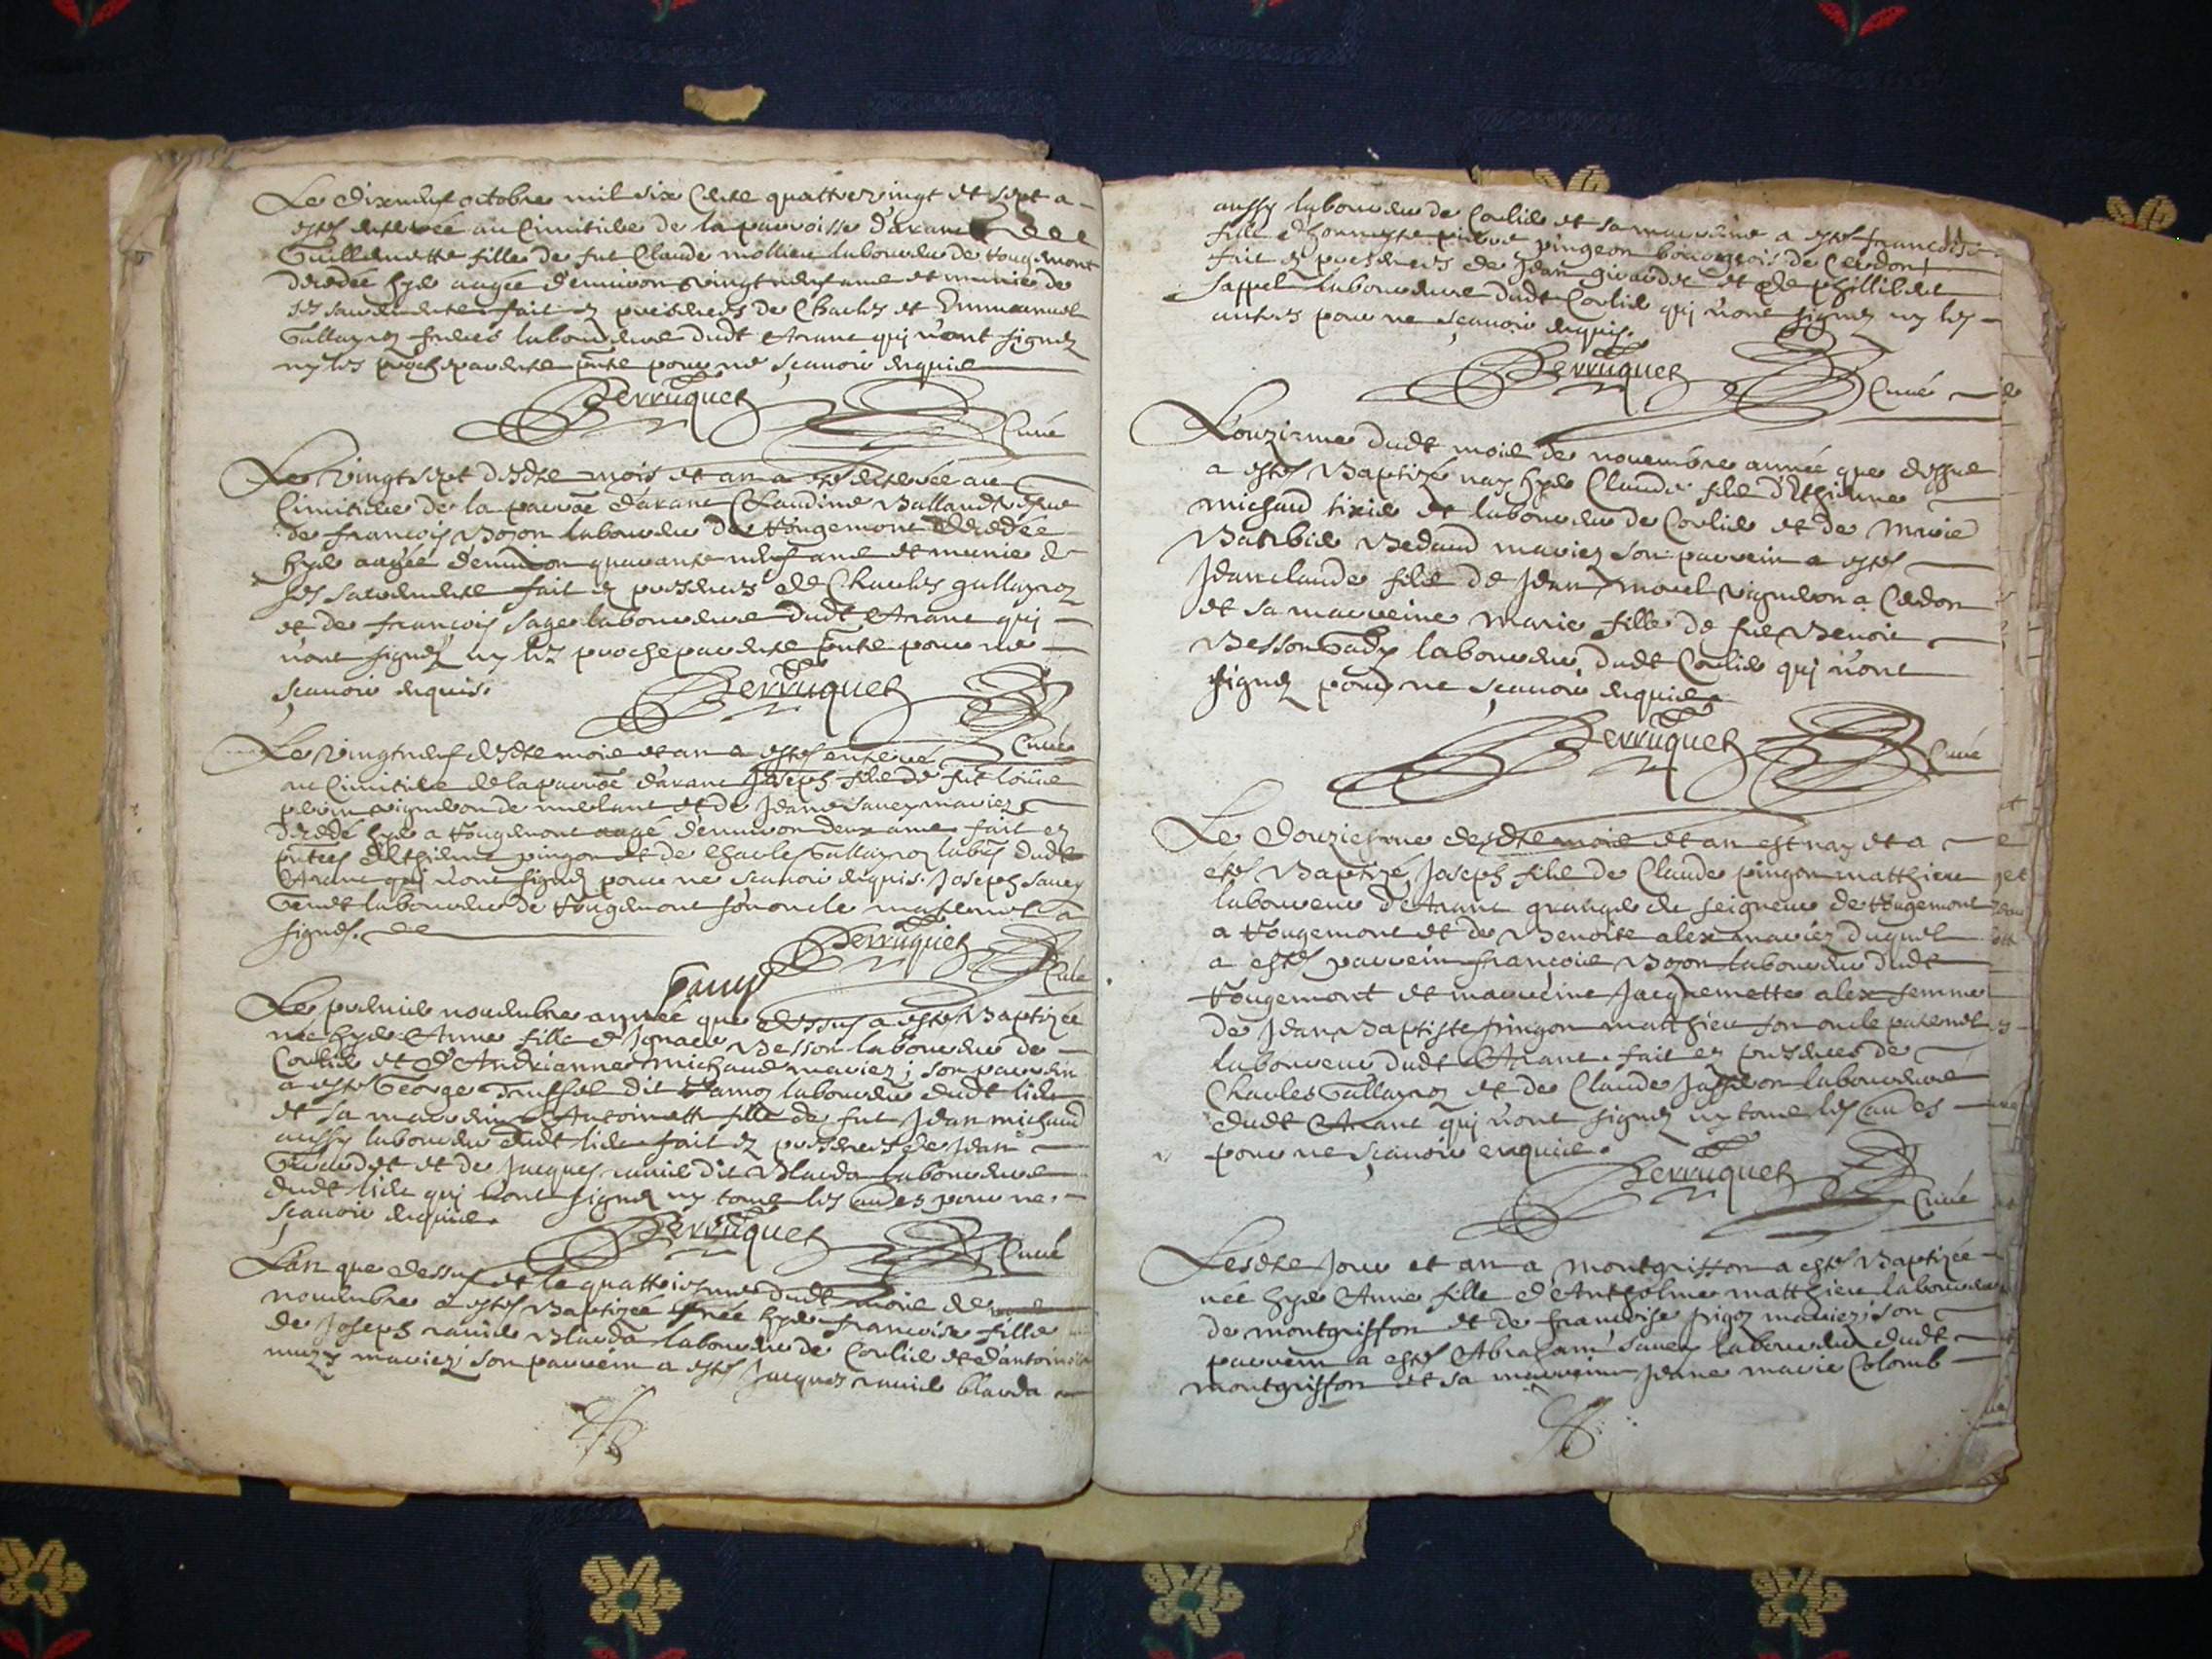 Le dixneuf octobre mil six cents quattrevingt et sept a
esté enterrée au Cimitiere de la parroisse d'aranc
Guillemette fille de fut Claude mollieu laboureur de rougemont
decedée hyer aagée d'environ vingt neuf ans et munie de
ses sacrements fait es presences de Charles et Emmanuel
Gallayroz freres laboureurs dudt Aranc qui n'ont signez
ny les proche parents pour ne sçavoir enquis
Perruquet Curé
Le vingt sept desdts mois et an a esté enterrée au
Cimitiere de la parroe d'aranc Claudine Balland vefve
de françois Bozon laboureur de Rougemont decedée
hyer aagée d'environ quarante neuf ans et munie de
ses sacrements fait es presences de Charles gallayroz
et de françois sage laboureurs dudt Aranc qui
n'ont signez ny les proche parents pour ne
sçavoir enquis.
Perruquet Curé
Le vingtneuf desdts mois et an a esté enterré
au Cimitiere de la parroe d'aranc Joseph fils de fut
vigneron de et de Jeane Savey mariez
decedé hyer a rougemont aagé d'environ deux ans fait es
d'Ethienne pingon et de Charles Gallayroz dudt
Aranc qui n'ont signez pour ne scavoir enquis. Joseph Savey
laboureur de Rougemont son oncle maternel a
signé.
Perruquet Curé
Savey
Le premier novembre année que dessus a esté Baptizée
née hyer Anne fille d'Ignace Besson laboureur de
Corlier et d'Andrianne michaud mariez; son parrein
a esté George Truffel dit laboureur dudt lieu
et sa marreine Antoinette fille de fut Jean michaud
aussy laboureur dudt lieu fait es presences de Jean
Girardet et de Jacques ravier dit Blarda laboureurs
dudt lieu qui n'ont signez ny tous les autres pour ne
scavoir enquis.
Perruquet Curé
L'an que dessus et le quattriesme dudt mois de
novembre a esté Baptizée née hyer françoise fille
de Joseph ravier Blarda laboureur de Corlier et d'antoinette
mariez son parrein a esté Jacques ravier blarda
aussy laboureur de Corlier et sa marreine a esté françoise
fille d'honneste pierre pingeon bourgeois de Cerdon
fait es presences de Jean girardet et de phillibert
Sappel laboureurs dudt Corlier qui n'ont signez ny les
autres pour ne sçavoir enquis.
Perruquet Curé
L'onziesme dudt mois de novembre année que dessus
a esté Baptizé nay hyer Claude fils d'Ethienne
michaud tixier et laboureur de Corlier et de Marie
Barbier Bedaud mariez son parrein a esté
Jean claude fils de Jean morel vigneron a Cerdon
et sa marreine Marie fille de fut Benoit
Besson laboureur dudt Corlier qui n'ont
signez pour ne sçavoir enquis
Perruquet Curé
Le douziesme desdts mois et an est nay et a
été Baptizé Joseph fils de Claude pingon matthieu
laboureur d'Aranc granger du seigneur de Rougemont
a Rougemont et de Benoite alex mariez duquel
a esté parrein françois Bozon laboureur dudt
Rougemont et marreine Jacquemette alex femme
de Jean Baptiste pingon matthieu son oncle paternel
laboureur dudt Aranc. fait es presences de
Charles Gallayroz et de Claude laboureurs
dudt Aranc qui n'ont signez ny tous les autres
pour ne sçavoir enquis.
Perruquet Curé
Lesdts Jour et an a montgriffon a esté Baptizée
née hyer Anne fille d'Antholme matthieu laboureur
de montgriffon et de françoise mariez son
parrein a esté Abraham Savey laboureur dudt
montgriffon et sa marreine Jeane marie Colomb